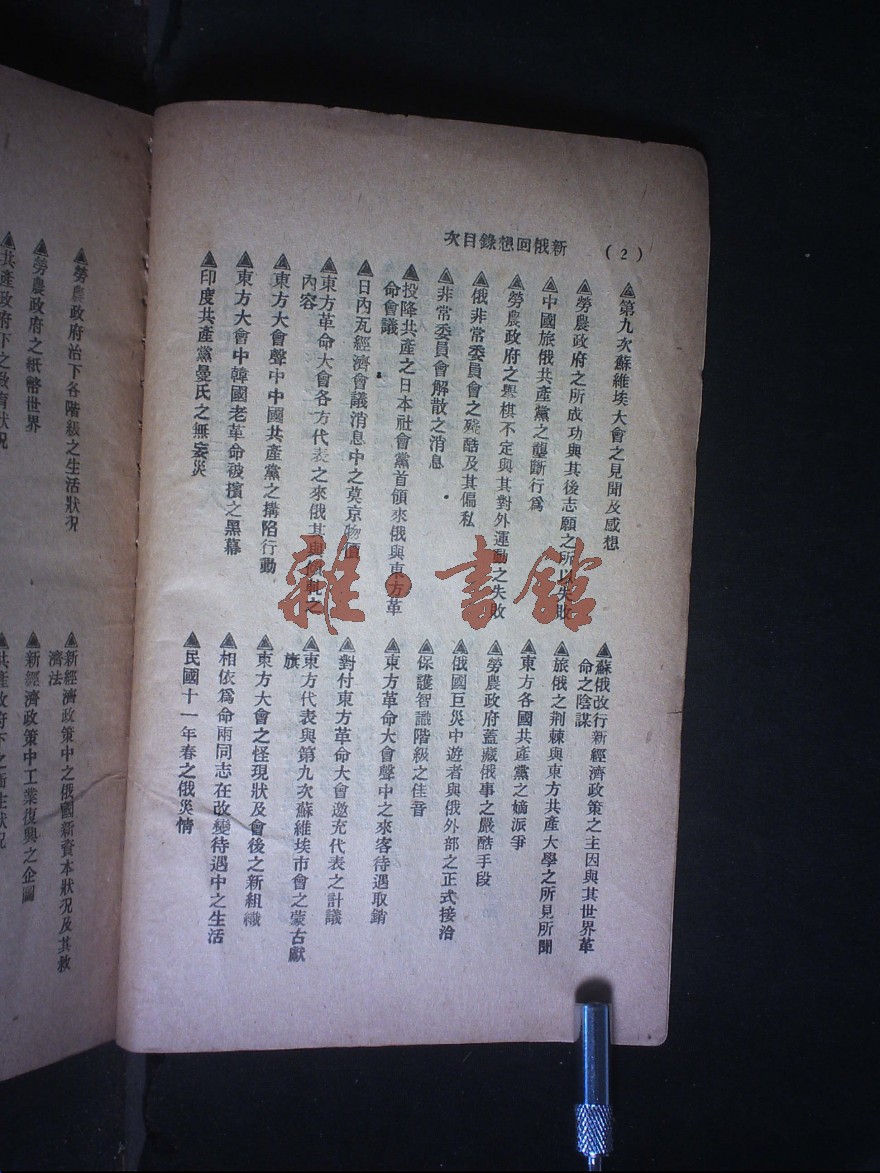 (2)
新俄回想錄目次
▲第九次蘇維埃大會之見聞及感想
▲勞農政府之所成功與其後志願之所以失敗
▲中國旅俄共產黨之壟斷行爲
▲勞農政府之舉棋不定與其對外運動之失敗
▲俄非常委員會之殘酷及其偏私
▲非常委員會解散之消息
▲投降共產之日本社會黨首領來俄與東方革
命會議
▲日內瓦經濟會議消息中之莫京物價
▲東方革命大會各方代表之來俄其與傾軋之
內容
▲東方大會聲中中國共產黨之搆陷行動
▲東方大會中韓國老革命被擯之黑幕
▲印度共產黨曼氏之無妄災
▲蘇俄改行新經濟政策之主因與其世界革
命之陰謀
▲旅俄之荆棘與東方共產大學之所見所聞
▲東方各國共產黨之嫡派爭
▲勞農政府蓋藏俄事之嚴酷手段
▲俄國巨災中遊者與俄外部之正式接洽
▲保護智識階級之佳音
▲東方革命大會聲中之來客待遇取銷
▲對付東方革命大會邀充代表之計議
▲東方代表與第九次蘇維埃市會之蒙古獻
旗
▲東方大會之怪現狀及會後之新組織
▲相依爲命兩同志在改變待遇中之生活
▲民國十一年春之俄災情
▲勞農政府治下各階級之生活狀况
▲勞農政府之紙幣世界
▲共產政府下之教育狀况
▲新經濟政策中之俄國新資本狀况及其救
濟法
▲新經濟政策中工業復興之企圖
▲共產政府下之衛生狀况
雜·書館